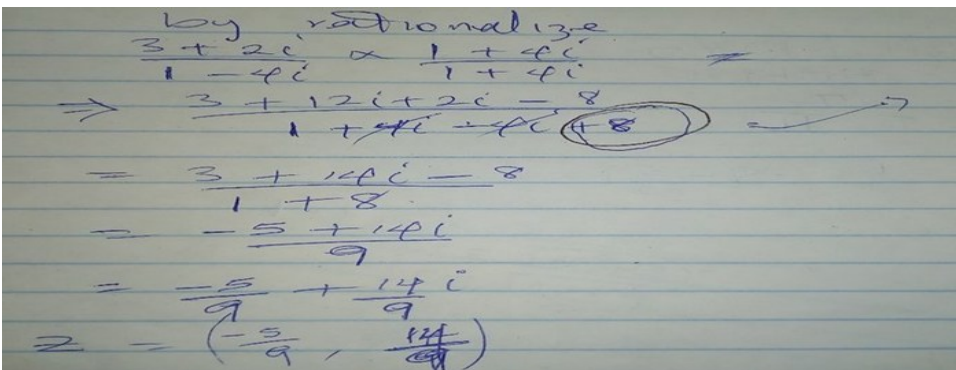 by rationalize
3 + 2i / 1 - 4i × 1 + 4i / 1 + 4i =
⇒ 3 + 12i + 2i - 8 / 1 + 4i - 4i + 8 =
= 3 + 14i - 8 / 1 + 8
= -5 + 14i / 9
= -5/9 + 14/9 i
z = (-5/9, 14/9)